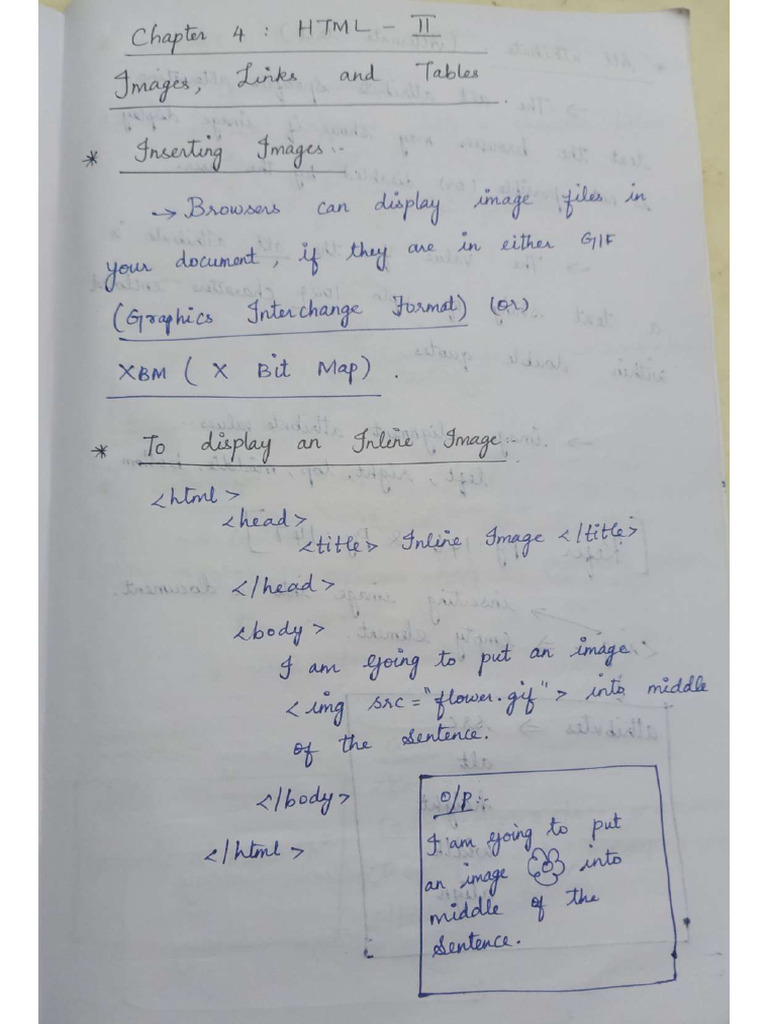 Chapter 4 : HTML - II
Images, Links and Tables
* Inserting Images:-
→ Browsers can display image files in
your document, if they are in either GIF
(Graphics Interchange Format) (or)
XBM ( X Bit Map) .
* To display an Inline Image:-
<html>
<head>
<title> Inline Image </title>
</head>
<body>
I am going to put an image
<img src = "flower.gif"> into middle
of the sentence.
</body>
</html>
O/P:-
I am going to put
an image into
middle of the
sentence.